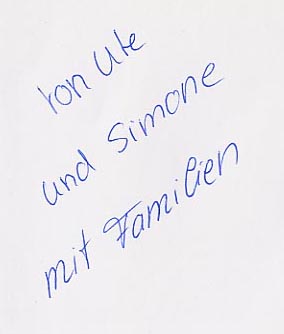 von Ute
und Simone
mit Familien